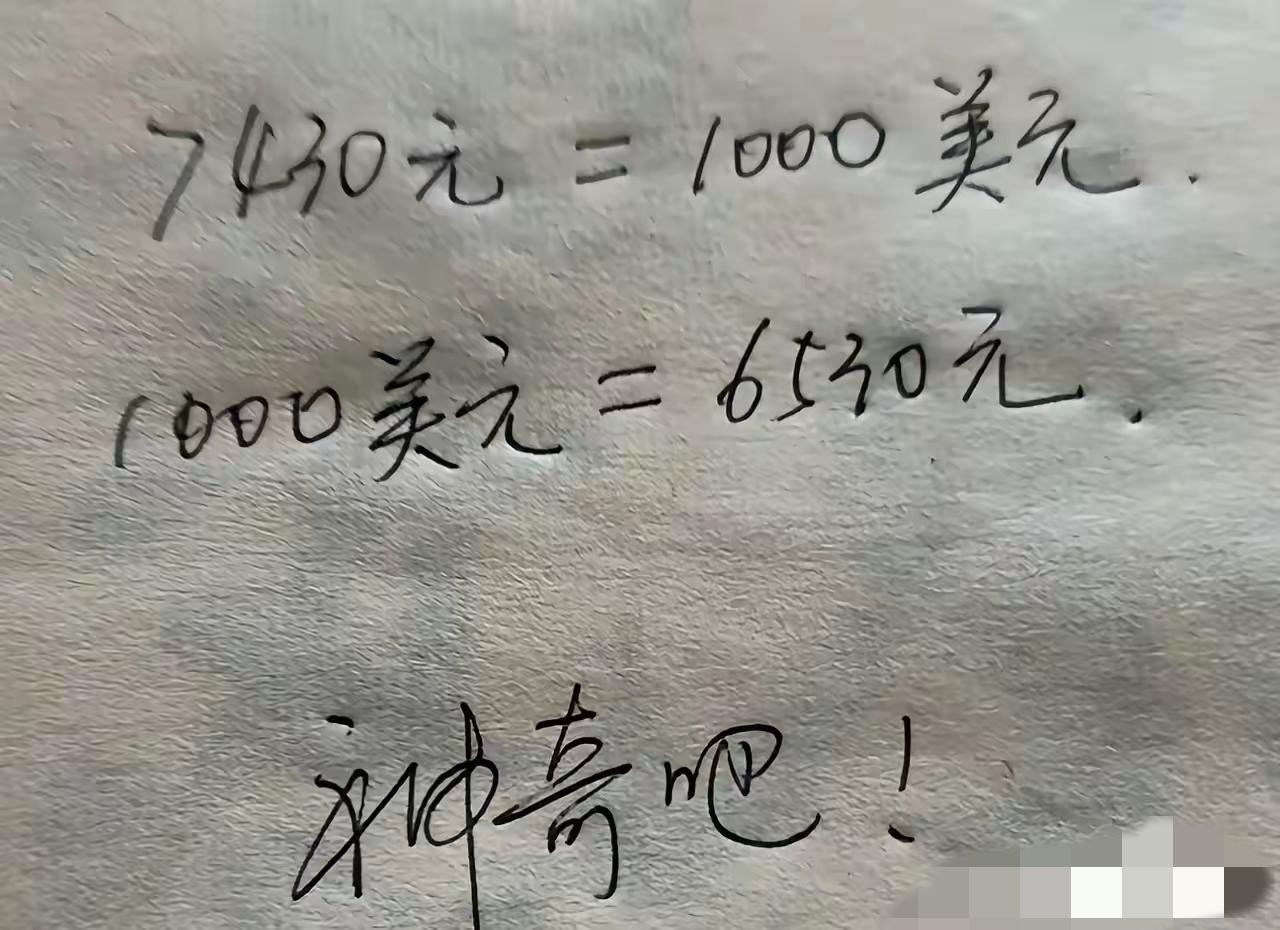 7430元 = 1000美元.
1000美元 = 6530元.
神奇吧!